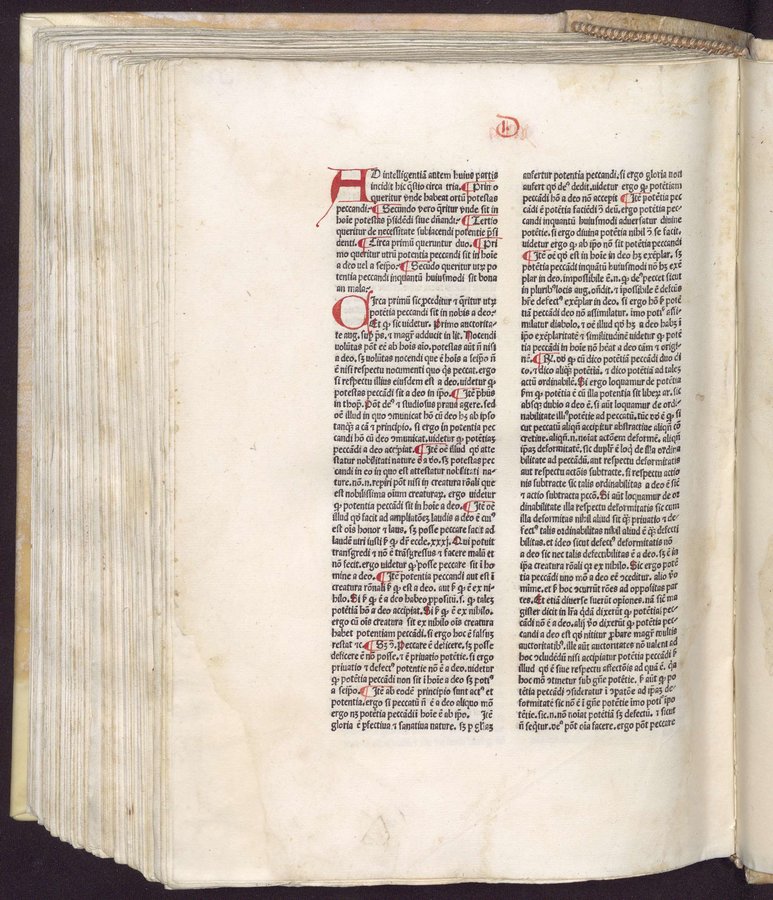 D
AD intelligentiā autem huius partis
incidit hic q̄stio circa tria. Primo
queritur vnde habeat ortū potestas
peccandi. Secundo vero q̄ritur vnde sit in
hoīe potestas p̄sidēdi siue dn̄andi. Tertio
queritur de necessitate subiacendi potentie p̄si
denti. Circa primū queruntur duo. Pri
mo queritur utrū potentia peccandi sit in hoīe
a deo vel a seip̄o. Secūdo queritur utrꝫ po
tentia peccandi inquantū huiusmodi sit bona
an mala.
CIrca primū sic ꝓceditur ⁊ q̄ritur utrꝫ
potētia peccandi sit in nobis a deo.
Et ꝙ sic uidetur. Primo auctorita
te aug. sup ps. ⁊ magr̄ adducit in lit. Nocendi
volūtas pōt eē ab hoīs aīo. potestas aūt n̄ nisi
a deo. sꝫ volūtas nocendi que ē hoīs a seipō n̄
ē nisi respectu nocumenti quo q̄s peccat. ergo
si respectu illius eiusdem est a deo. uidetur ꝙ
potestas peccādi sit a deo in ip̄o. Itē ph̄us
in thop. Pōt deꝰ ⁊ studiosus praua agere. sed
oē illud in quo ꝯmunicat hō cū deo hꝫ ab ipso
tanqꝫ a cā ⁊ principio. si ergo in potentia pec
candi hō cū deo ꝯmunicat. uidetur ꝙ potētiaꝫ
peccādi a deo accipiat. Itē oē illud qd̄ atte
statur nobilitati nature ē a deo. sꝫ potestas pec
candi in eo in quo est attestatur nobilitati na
ture. nō. n. repiri pōt nisi in creatura rōnali que
est nobilissima oīum creaturaꝝ. ergo uidetur
ꝙ potentia peccandi sit in hoīe a deo. Itē oē
illud qd̄ facit ad ampliationeꝫ laudis a deo ē cuiꝰ
est oīs honor ⁊ laus. sꝫ posse peccare facit ad
laudē uiri iusti ꝙ dr̄ eccle. xxxj. Qui potuit
transgredi ⁊ nō ē trāsgressus ⁊ facere malū et
nō fecit. ergo uidetur ꝙ posse peccare sit ī ho
mine a deo. Itē potentia peccandi aut est ī
creatura rōnali ꝙ est a deo. aut ꝙ ē ex ni
hilo. Si ꝙ ē a deo habeo ꝓpositū. s. ꝙ taleꝫ
potētiā hō a deo accipiat. Si ꝙ ē ex nihilo.
ergo cū oīs creatura sit ex nihilo oīs creatura
habet potentiam peccādi. si ergo hoc ē falsuꝫ
restat ⁊c. Sꝫ ꝯ. Peccare ē deficere. sꝫ posse
deficere ē nō posse. ⁊ ē priuatio potētie. si ergo
priuatio ⁊ defectꝰ potentie nō ē a deo. uidetur
ꝙ potētia peccādi non sit ī hoīe a deo sꝫ potiꝰ
a seipo. Itē ab eodē principio sunt actꝰ et
potentia. ergo si peccatū n̄ ē a deo aliquo mō
ergo nꝫ potētia peccādi ī hoīe ē ab ip̄o. Itē
gloria ē ꝑfectiua ⁊ sanatiua nature. sꝫ p gl̄iaꝫ
aufertur potentia peccandi. si ergo gloria non
aufert qd̄ deꝰ dedit. uidetur ergo ꝙ potētiam
peccādi hō a deo nō accepit. Itē potētia pec
cādi ē potētia faciēdi ꝯ deū. ergo potētia pec
candi inquantū huiusmodi aduersatur diuine
potētie. si ergo diuina potētia nihil ꝯ se facit.
uidetur ergo ꝙ ab ip̄o nō sit potētia peccandi
Itē oē qd̄ est in hoīe a deo hꝫ exēplar. sꝫ
potētia peccādi inquātū huiusmodi nō hꝫ exē
plar in deo. impossibile ē. n. ꝙ deꝰ peccet sicut
in pluribꝰ locis aug. on̄dit. ⁊ īpossibile ē defectꝰ
hr̄e defectꝰ exēplar in deo. si ergo hō ꝑ potē
tiā peccandi deo nō assimilatur. imo potiꝰ assi
milatur diabolo. ⁊ oē illud qd̄ hꝫ a deo habꝫ ī
ip̄o exēplaritatē ⁊ similitudinē uidetur ꝙ potē
tia peccādi in hoīe nō h̄eat a deo cām ⁊ origi
nē. Rꝰ. dd̄ ꝙ cū dico potētiā peccādi duo di
co. ⁊ dico aliqā potētiā. ⁊ dico potētiā ad taleꝫ
actū ordinabilē. Si ergo loquamur de potētia
ẜm ꝙ potētia ē cū illa potentia sit liberꝫ ar. sic
absqꝫ dubio a deo ē. si aūt loquamur de ordi-
nabilitate illiꝰ potētie ad peccatū. tūc dd̄ ē ꝙ. si
cut peccatū aliqn̄ accipitur abstractiue aliqn̄ cō
cretiue. aliqn̄. n. noīat actoēm deformē. aliqn̄
ipaꝫ deformitatē. sic duplr̄ ē loq̄ de illa ordina
bilitate ad peccādū. aut respectu deformitatis
aut respectu actōis subtracte. si respectu actio
nis subtracte sic talis ordinabilitas a deo ē sic
⁊ actio subtracta pccō. Si aūt loquamur de or
dinabilitate illa respectu deformitatis sic cum
illa deformitas nihil aliud sit qꝫ priuatio ⁊ de-
fectꝰ talis ordinabilitas nihil aliud ē qꝫ defecti
bilitas. et ideo sicut defectꝰ deformitatis nō ē
a deo sic nec talis defectibilitas ē a deo. sꝫ ē in
ip̄a creatura rōali qꝫ ex nihilo. Sic ergo potē
tia peccādi uno mō a deo eē ꝯceditur. alio vo
mīme. et ꝑ hoc ꝯcurrūt rōes ad oppositas par
tes. Et etiā diuerse fuerūt opiones. nā sic ma
gister dicit in lr̄a qdā dixerūt ꝙ potētiaꝫ pec-
cādi nō ē a deo. alij vo dixerūt ꝙ potētia pec
candi a deo est qd̄ nititur ꝓbare magr̄ multis
auctoritatibꝰ. ille aūt auctoritates nō ualent ad
hoc ꝯcludēdū nisi accipiatur potētia peccādi ꝑ
illud qd̄ ē siue respectu affectōis ad quā ē. qa
hoc mō ꝯtinetur sub gn̄e potētie. ꝑ aūt ꝙ po
tētia peccādi ꝯsideratur ī ꝯpatōe ad ip̄aꝫ de-
formitatē sic nō ē ī gn̄e potētie imo potiꝰ īpo
tētie. sic. n. nō noīat potētiā sꝫ defectū. ⁊ sicut
n̄ seq̄tur. deꝰ pōt oīa facere. ergo pōt peccare